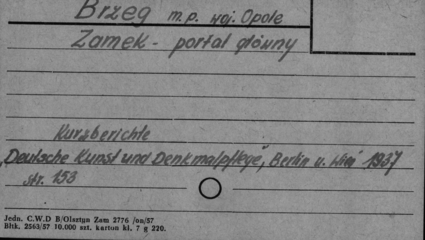 Brzeg m.p. woj. Opole
Zamek - portal główny
Kurzberichte
"Deutsche Kunst und Denkmalpflege", Berlin u. Wien 1937
str. 153
Jedn. C.W.D B/Olsztyn Zam 2776 /on/57
Bhk. 2563/57 10.000 szt. karton kl. 7 g 220.